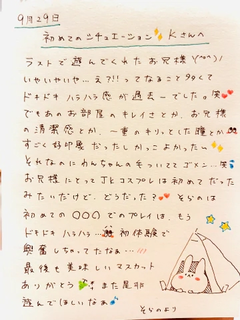 9月29日
初めてのシチュエーション✨Kさんへ
ラストで遊んでくれたお兄様\(^o^)/
いやいやいや…え?!!ってなること多くて
ドキドキハラハラ感が過去一でした。笑
でもあのお部屋のキレイさとか、お兄様
の清潔感とか、一重のキリッとした瞳とか
すごく好印象だったしかっこよかったぃ
それなのにわんちゃんの毛ついててゴメン…笑
お兄様にとってJとコスプレは初めてだった
みたいだけど、どうだった?
そらのは
初めての〇〇〇でのプレイは、もう
ドキドキハラハラ…初体験で
興奮しちゃってたなぁ…///
最後も美味しいマスカット
ありがとう
また是非
遊んでほしいなぁ
そらのより